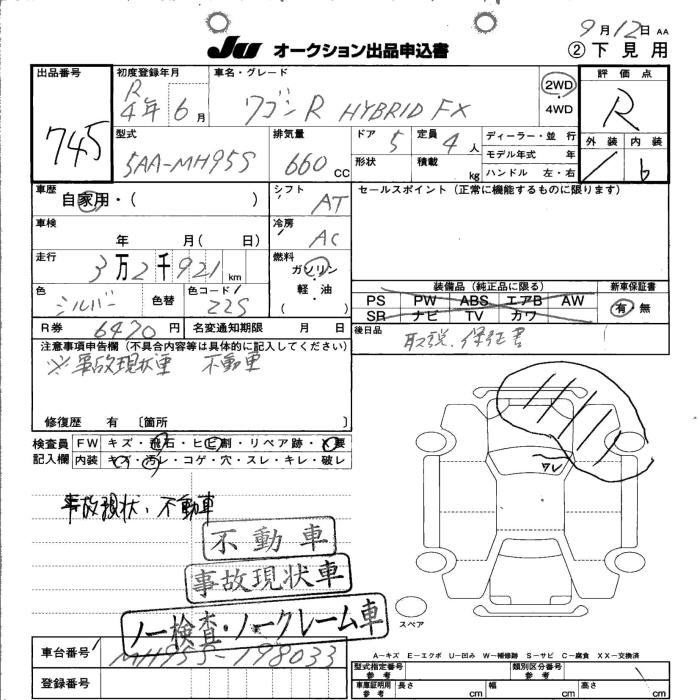 9月12日 AA
JU オークション出品申込書
② 下見用
出品番号
745
初度登録年月
R
4年6月
車名・グレード
ワゴンR HYBRID FX
2WD
・
4WD
評価点
R
外装 内装
/ b
型式
5AA-MH95S
排気量
660 CC
ドア 5
定員 4人
形状
積載 kg
ディーラー・並行
モデル年式 年
ハンドル 左・右
車歴
自家用・( )
シフト
AT
セールスポイント(正常に機能するものに限ります)
車検
年 月( 日)
冷房
AC
走行
3万2千921 km
燃料
ガソリン
・
軽・油
( )
色
シルバー
色替
色コード
Z2S
装備品(純正品に限る)
PS PW ABS エアB AW
SR ナビ TV カワ
新車保証書
有・無
R券 6470円
名変通知期限 月 日
後日品
取説、保証書
注意事項申告欄(不具合内容等は具体的に記入してください)
※事故現状車 不動車
修復歴 有 〔箇所 〕
検査員
記入欄
FW キズ・飛石・ヒビ割・リペア跡・X要
内装 キズ・汚レ・コゲ・穴・スレ・キレ・破レ
ワレ
事故現状・不動車
不動車
事故現状車
ノー検査・ノークレーム車
スペア
車台番号
MH95S-198033
A-キズ E-エクボ U-凹み W-補修跡 S-サビ C-腐食 XX-交換済
型式指定番号
参考
類別区分番号
参考
登録番号
車庫証明用
参考
長さ cm
幅 cm
高さ cm